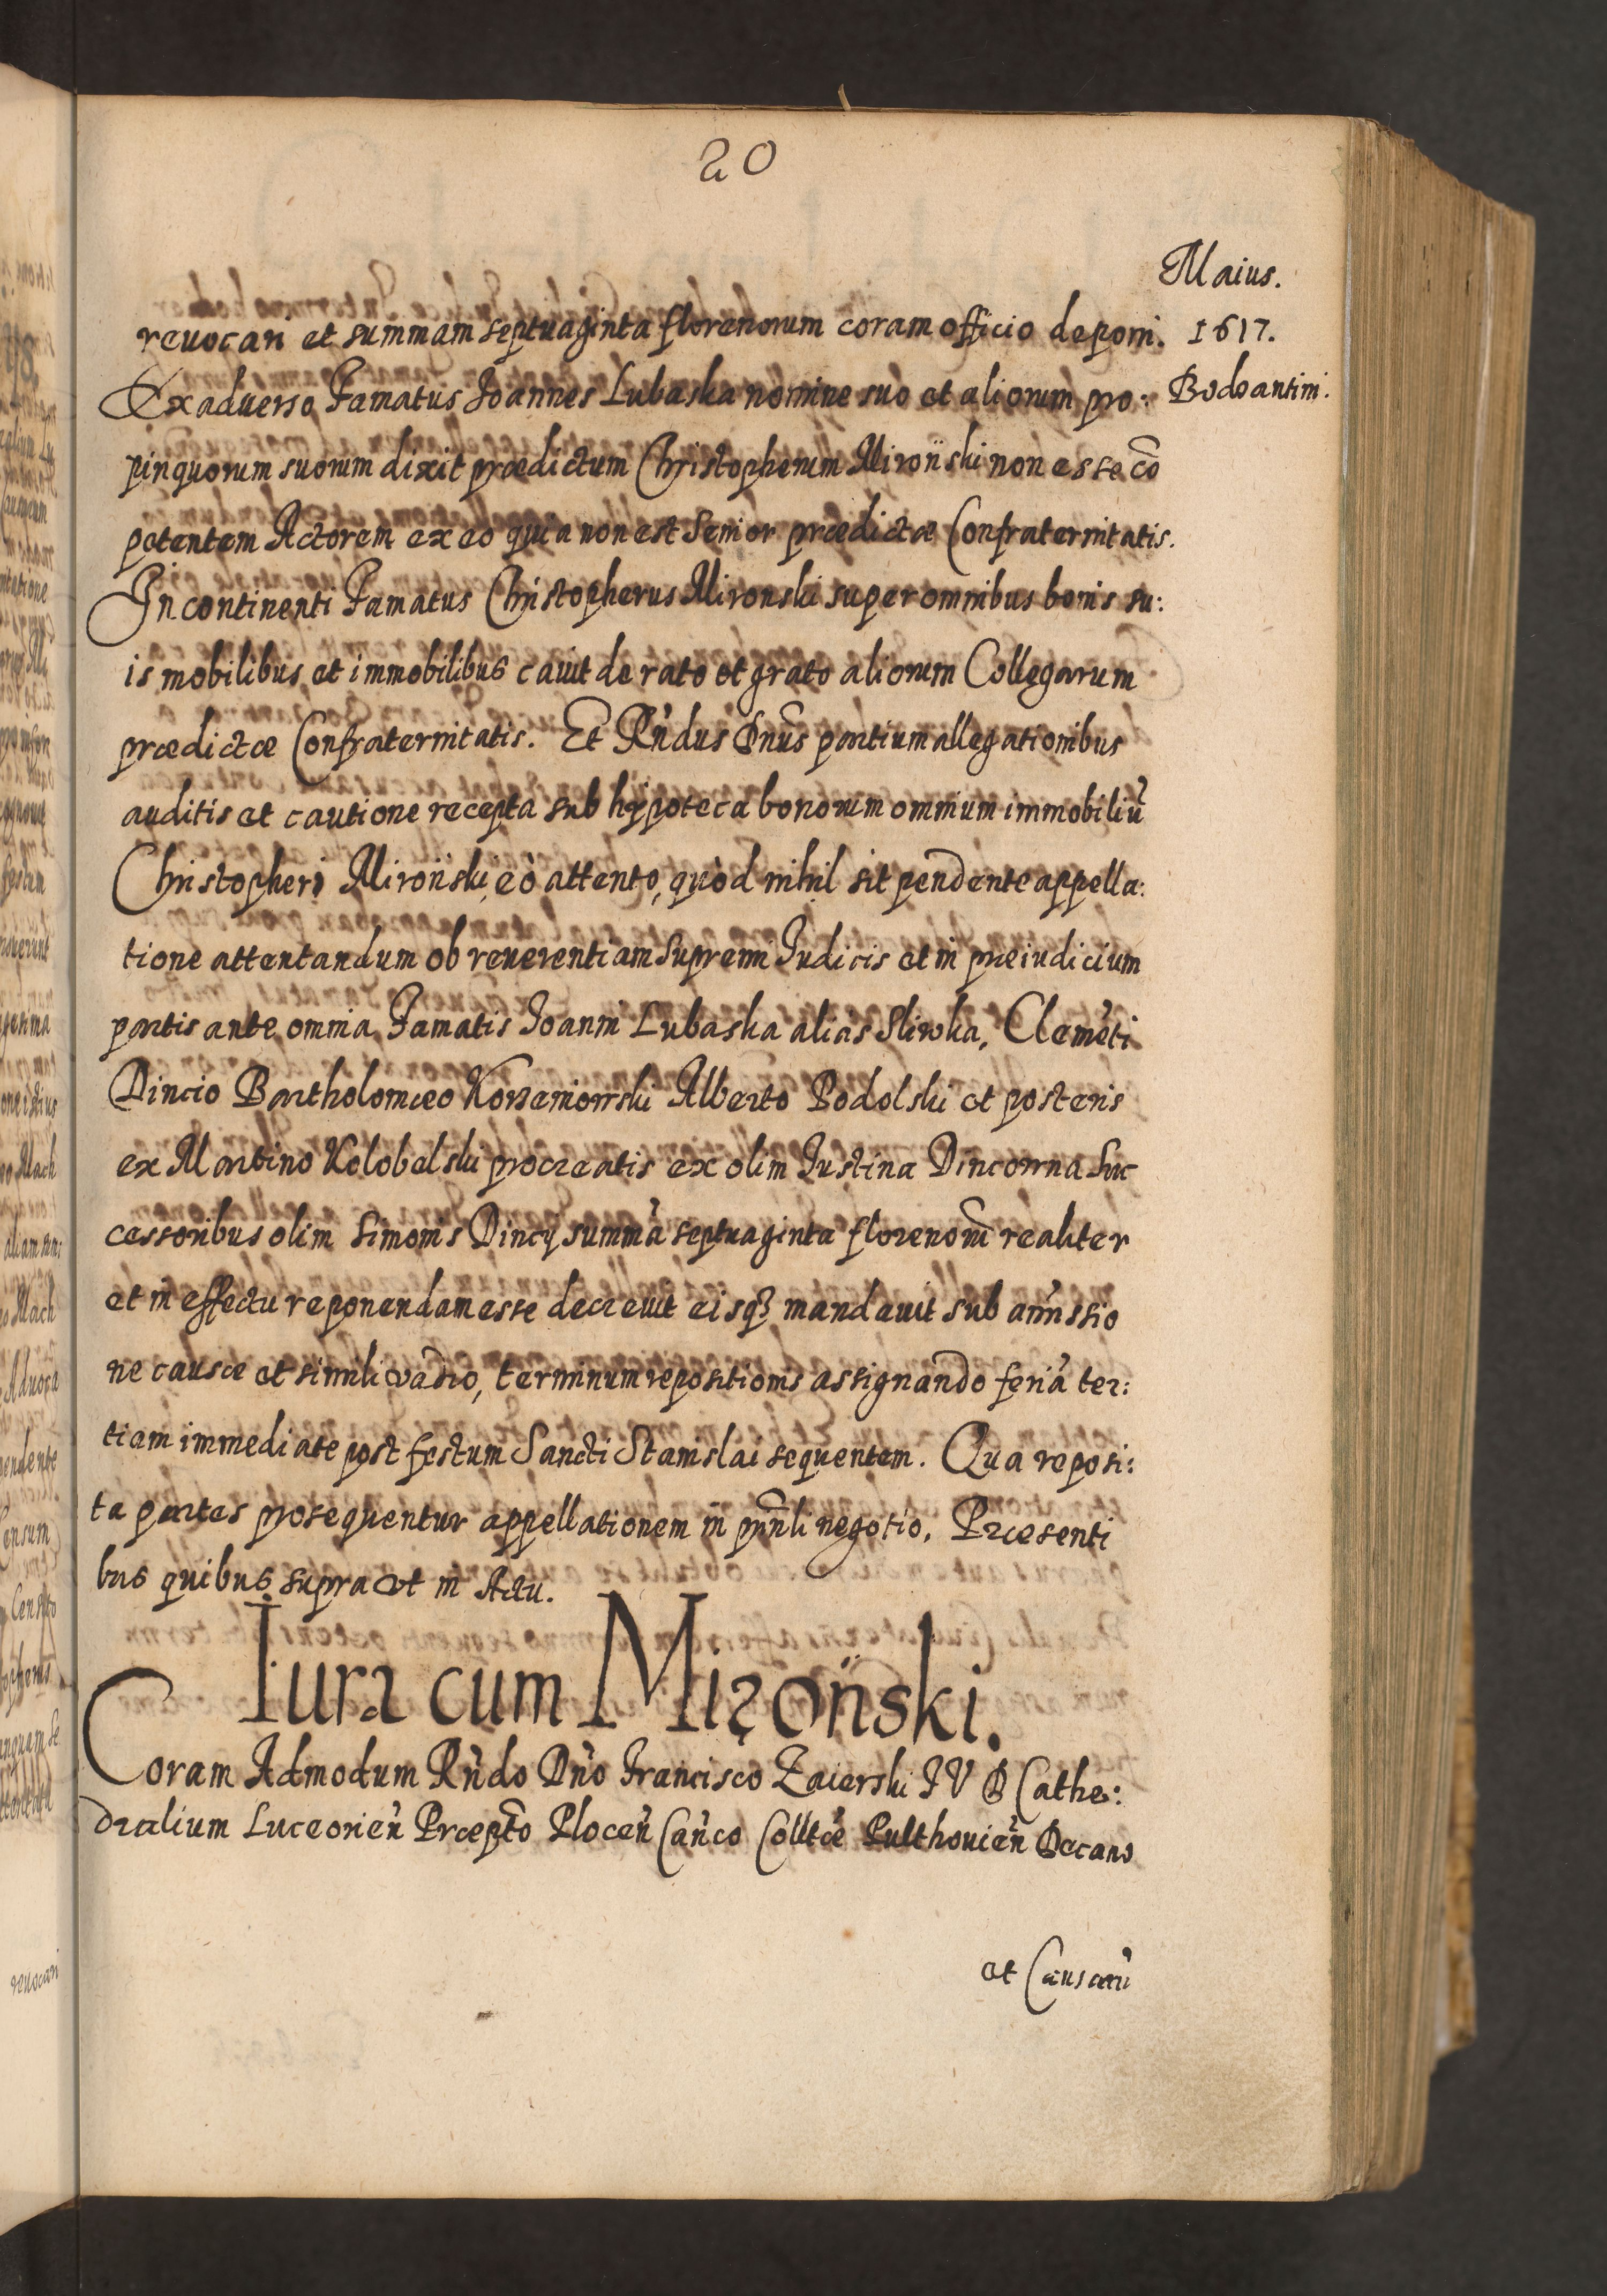 20
Maius.
1617.
Bodoantini.
reuocari et summam septuaginta florenorum coram officio deponi.
Ex aduerso Famatus Joannes Lubaska nomine suo et aliorum pro:
pinquorum suorum dixit prædictum Christopherum Mironski non esse cō
petentem Actorem ex eo quia non est Senior prædictæ Confraternitatis.
In continenti Famatus Christopherus Mironski super omnibus bonis su:
is mobilibus et immobilibus cauit de rato et grato aliorum Collegarum
prædictæ Confraternitatis. Et Rn̄dus Dnūs partium allegationibus
auditis et cautione recepta sub hypoteca bonorum omnium immobiliū
Christopheri Mironski, eò attento, quòd nihil sit pendente appella:
tione attentandum ob reuerentiam supremi Judicis et in præiudicium
partis ante omnia Famatis Joanni Lubaska aliàs Sliwka, Clemēti
Dincio Bartholomæo Korzeniowski Alberto Podolski et posteris
ex Martino Kolobelski procreatis ex olim Justina Dincowna suc
cessoribus olim Simonis Dincy summā septuaginta florenorū realiter
et in effectu reponendam esse decreuit eisq3 mandauit sub amissio
ne causæ et simili vadio, terminum repositionis assignando feriā ter:
tiam immediate post festum Sancti Stanislai sequentem. Qua reposi:
ta partes prosequentur appellationem in prn̄li negotio. Præsenti
bus quibus supra et in Actu.
Iura cum Miroński.
Coram Admodum Rn̄do Dn̄o Francisco Zaierski I V D Cathe:
dralium Luceorień Præpto Plocen̄ Can̄co Colltæ Pulthouien̄ Decano
et Causarū